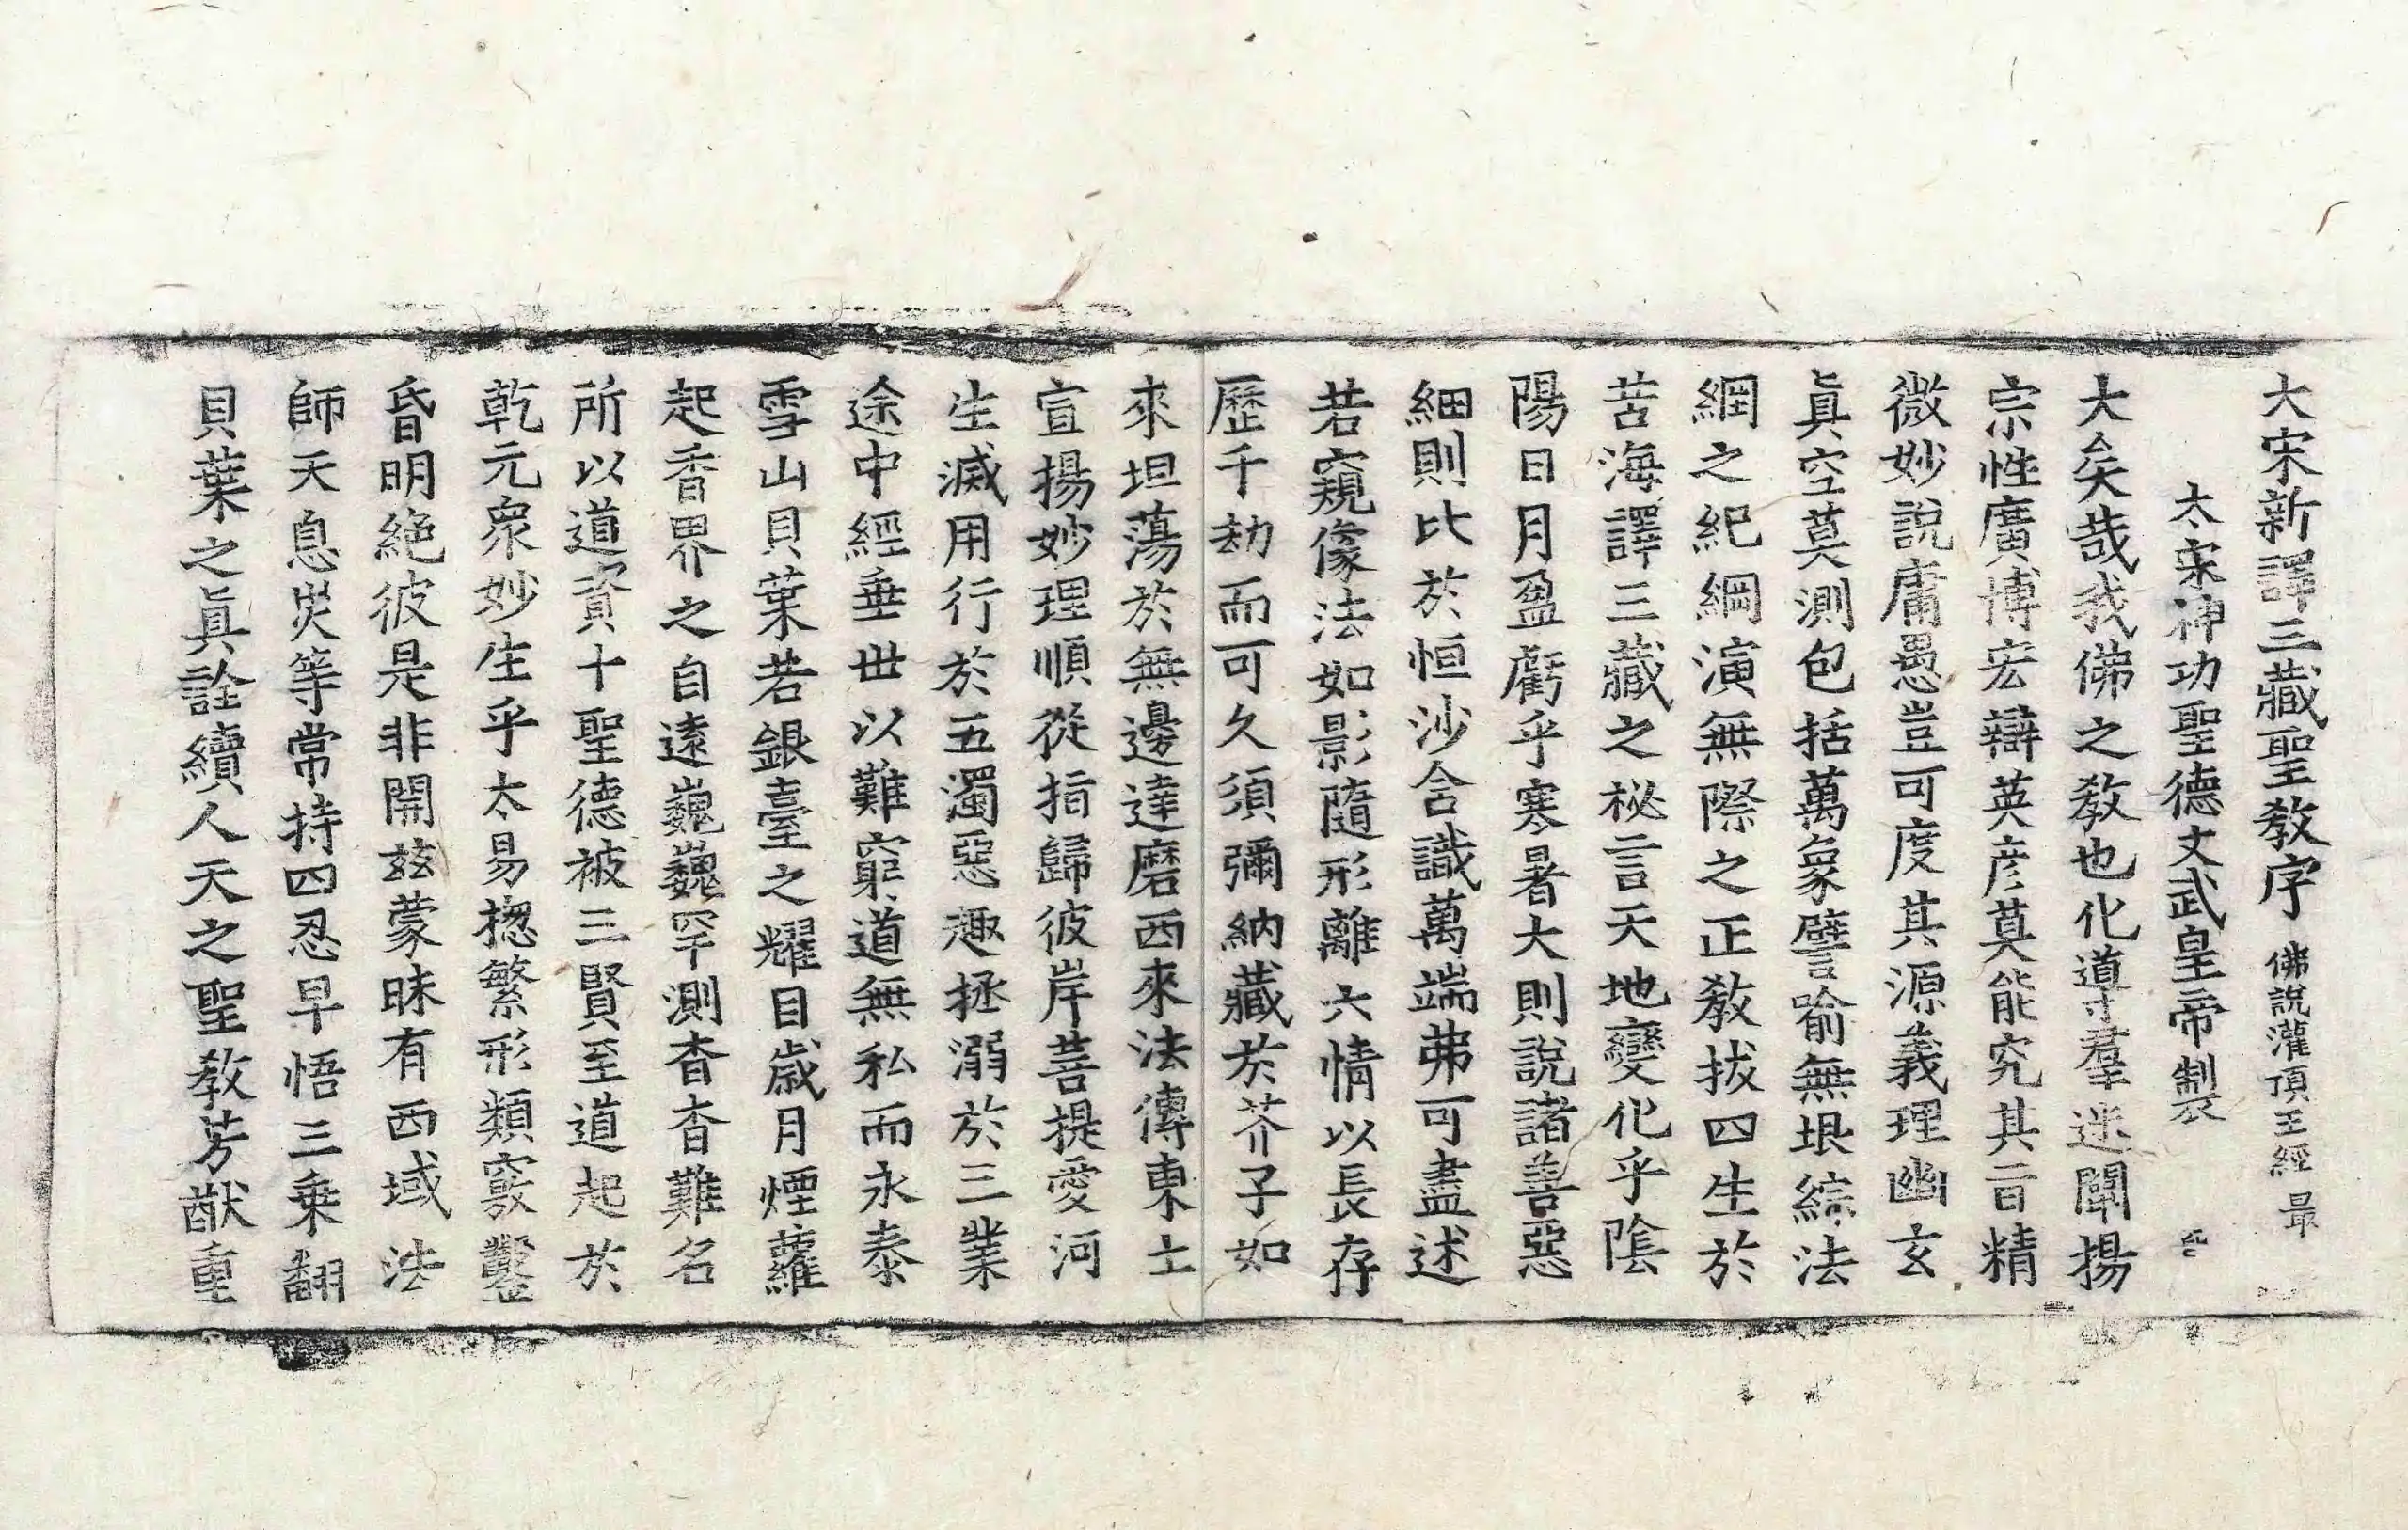 大宋新譯三藏聖教序 佛說灌頂王經 最
太宗神功聖德文武皇帝製
大矣哉我佛之教也化導羣迷闡揚
宗性廣博宏辯英彦莫能究其旨精
微妙說庸愚豈可度其源義理幽玄
眞空莫測包括萬象譬喻無垠綜法
網之紀綱演無際之正教拔四生於
苦海譯三藏之秘言天地變化乎陰
陽日月盈虧乎寒暑大則說諸善惡
細則比於恒沙含識萬端弗可盡述
若窺像法如影隨形離六情以長存
歷千劫而可久須彌納藏於芥子如
來坦蕩於無邊達磨西來法傳東土
宣揚妙理順從指歸彼岸菩提愛河
生滅用行於五濁惡趣拯溺於三業
途中經垂世以難窮道無私而永泰
雪山貝葉若銀臺之耀目歲月煙蘿
起香界之自遠巍巍罕測杳杳難名
所以道資十聖德被三賢至道起於
乾元衆妙生乎太易揔繁形類竅鑿
昏明絕彼是非開茲蒙昧有西域法
師天息災等常持四忍早悟三乘翻
貝葉之眞詮續人天之聖教芳猷重